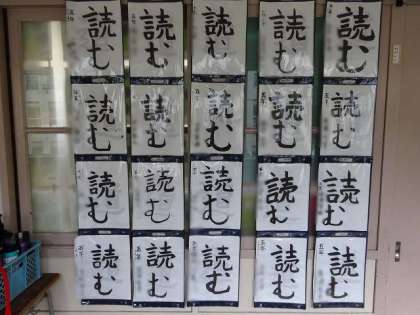 読む 読む 読む 読む 読む
読む 読む 読む 読む 読む
読む 読む 読む 読む 読む
読む 読む 読む 読む 読む